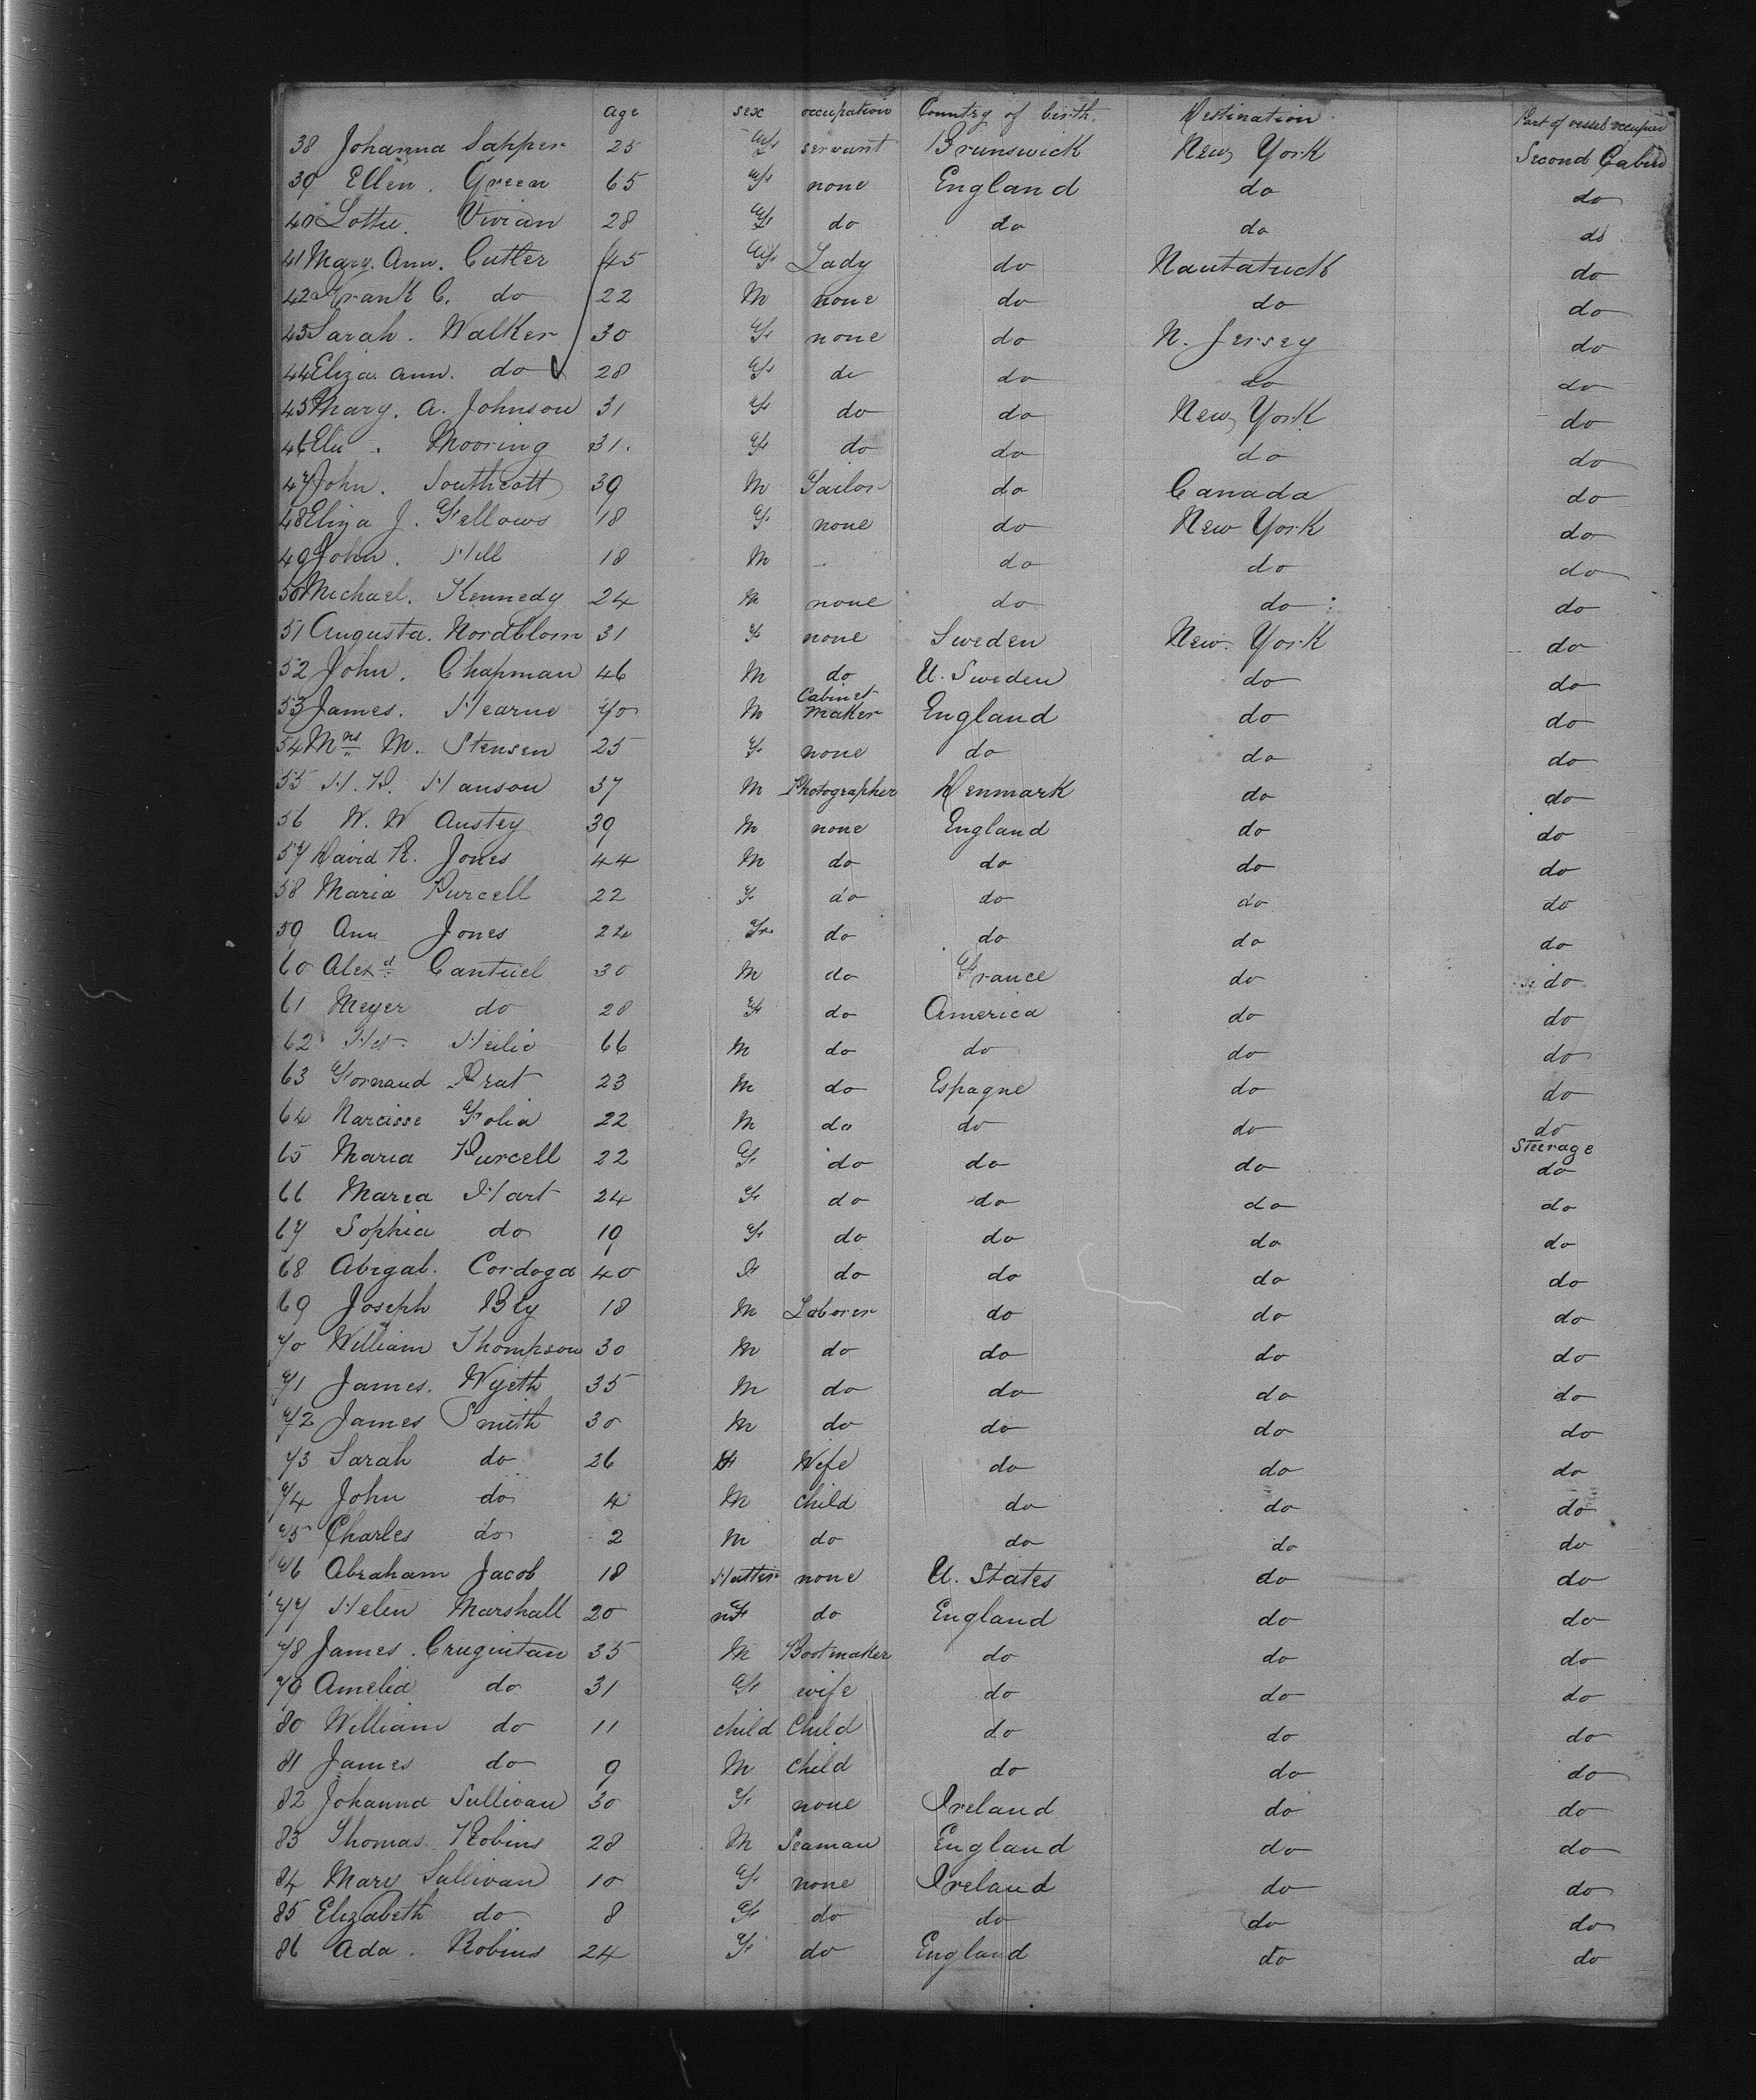 age sex occupation Country of birth. Destination Part of vessel occupied
38 Johanna Sapper 25 F servant Brunswick New York Second Cabin
39 Ellen. Green 65 F none England do do
40 Lottie. Vivian 28 F do do do do
41 Mary. Ann. Cutler 45 F Lady do do
42 Frank C. do 22 M none do do do
43 Sarah. Walker 30 F none do N. Jersey do
44 Eliza Ann. do 28 F do do do do
45 Mary. A. Johnson 31 F do do New York do
46 Mooring 31. F do do do do
47 John. Southcott 39 M do Canada do
48 Eliza J. Fellows 18 F none do New York do
49 John. Hill 18 M - do do do
50 Michael. Kennedy 24 M none do do do
51 Augusta. Nordblom 31 F none Sweden New York do
52 John. Chapman 46 M do U. Sweden do do
53 James. Hearne 70 M Cabinet maker England do do
54 Mrs M. Stensen 25 F none do do do
55 H. P. Hanson 37 M Photographer Denmark do do
56 W. W Austey 39 M none England do do
57 David R. Jones 44 M do do do do
58 Maria Purcell 22 F do do do do
59 Ann Jones 24 F do do do do
60 Alexd Cantuel 30 M do France do do
61 Meyer do 28 F do America do do
62 66 M do do do do
63 Fornaud Prat 23 M do Espagne do do
64 Narcisse Folia 22 M do do do do
Steerage
65 Maria Purcell 22 F do do do do
66 Maria Hart 24 F do do do do
67 Sophia do 19 F do do do do
68 Abigal. Cordoga 40 F do do do do
69 Joseph Bly 18 M Laborer do do do
70 William Thompson 30 M do do do do
71 James. Wyeth 35 M do do do do
72 James Smith 30 M do do do do
73 Sarah do 26 F Wife do do do
74 John do 4 M child do do do
75 Charles do 2 M do do do do
76 Abraham Jacob 18 Hatter none U. States do do
77 Helen Marshall 20 F do England do do
78 James. Crugintan 35 M Bootmaker do do do
79 Amelia do 31 F wife do do do
80 William do 11 child Child do do do
81 James do 9 M child do do do
82 Johanna Sullivan 30 F none Ireland do do
83 Thomas. Robins 28 M Seaman England do do
84 Mary Sullivan 10 F none Ireland do do
85 Elizabeth do 8 F do do do do
86 Ada. Robins 24 F do England do do